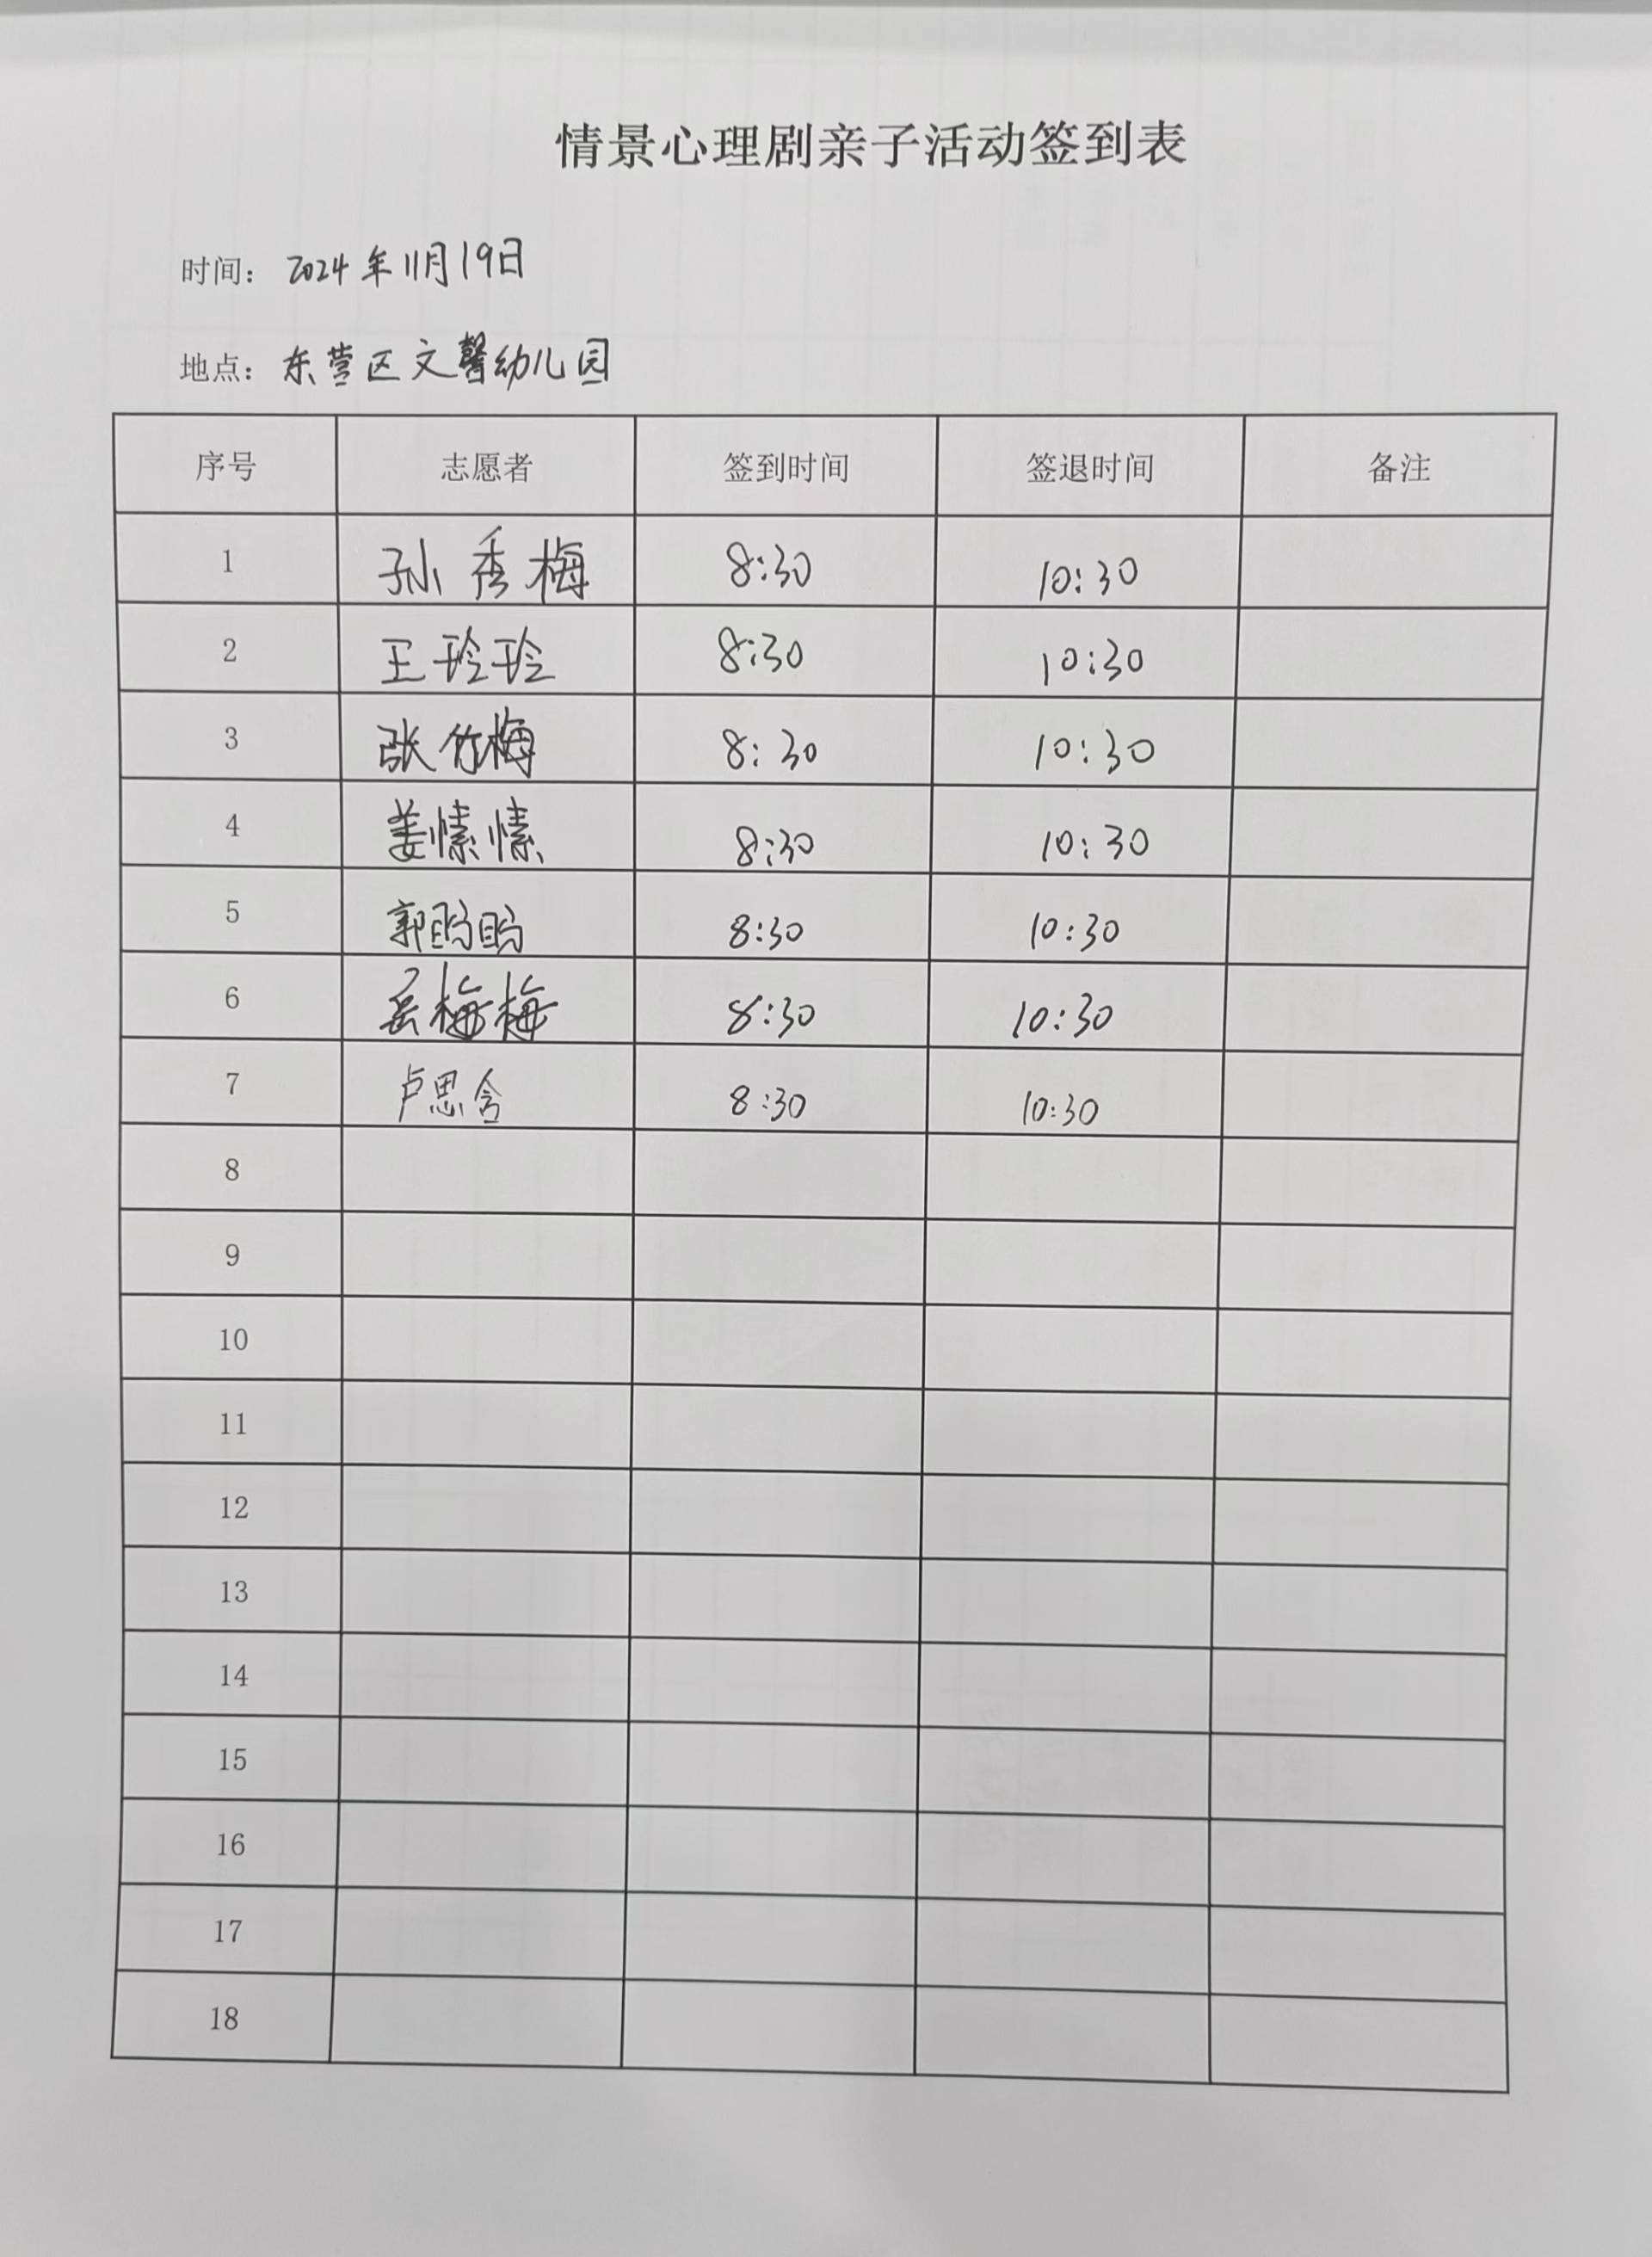 情景心理剧亲子活动签到表
时间：2024年11月19日
地点：东营区文馨幼儿园
序号 志愿者 签到时间 签退时间 备注
1 孙秀梅 8:30 10:30
2 王玲玲 8:30 10:30
3 张竹梅 8:30 10:30
4 姜愫愫 8:30 10:30
5 郭 8:30 10:30
6 岳梅梅 8:30 10:30
7 卢思含 8:30 10:30
8
9
10
11
12
13
14
15
16
17
18